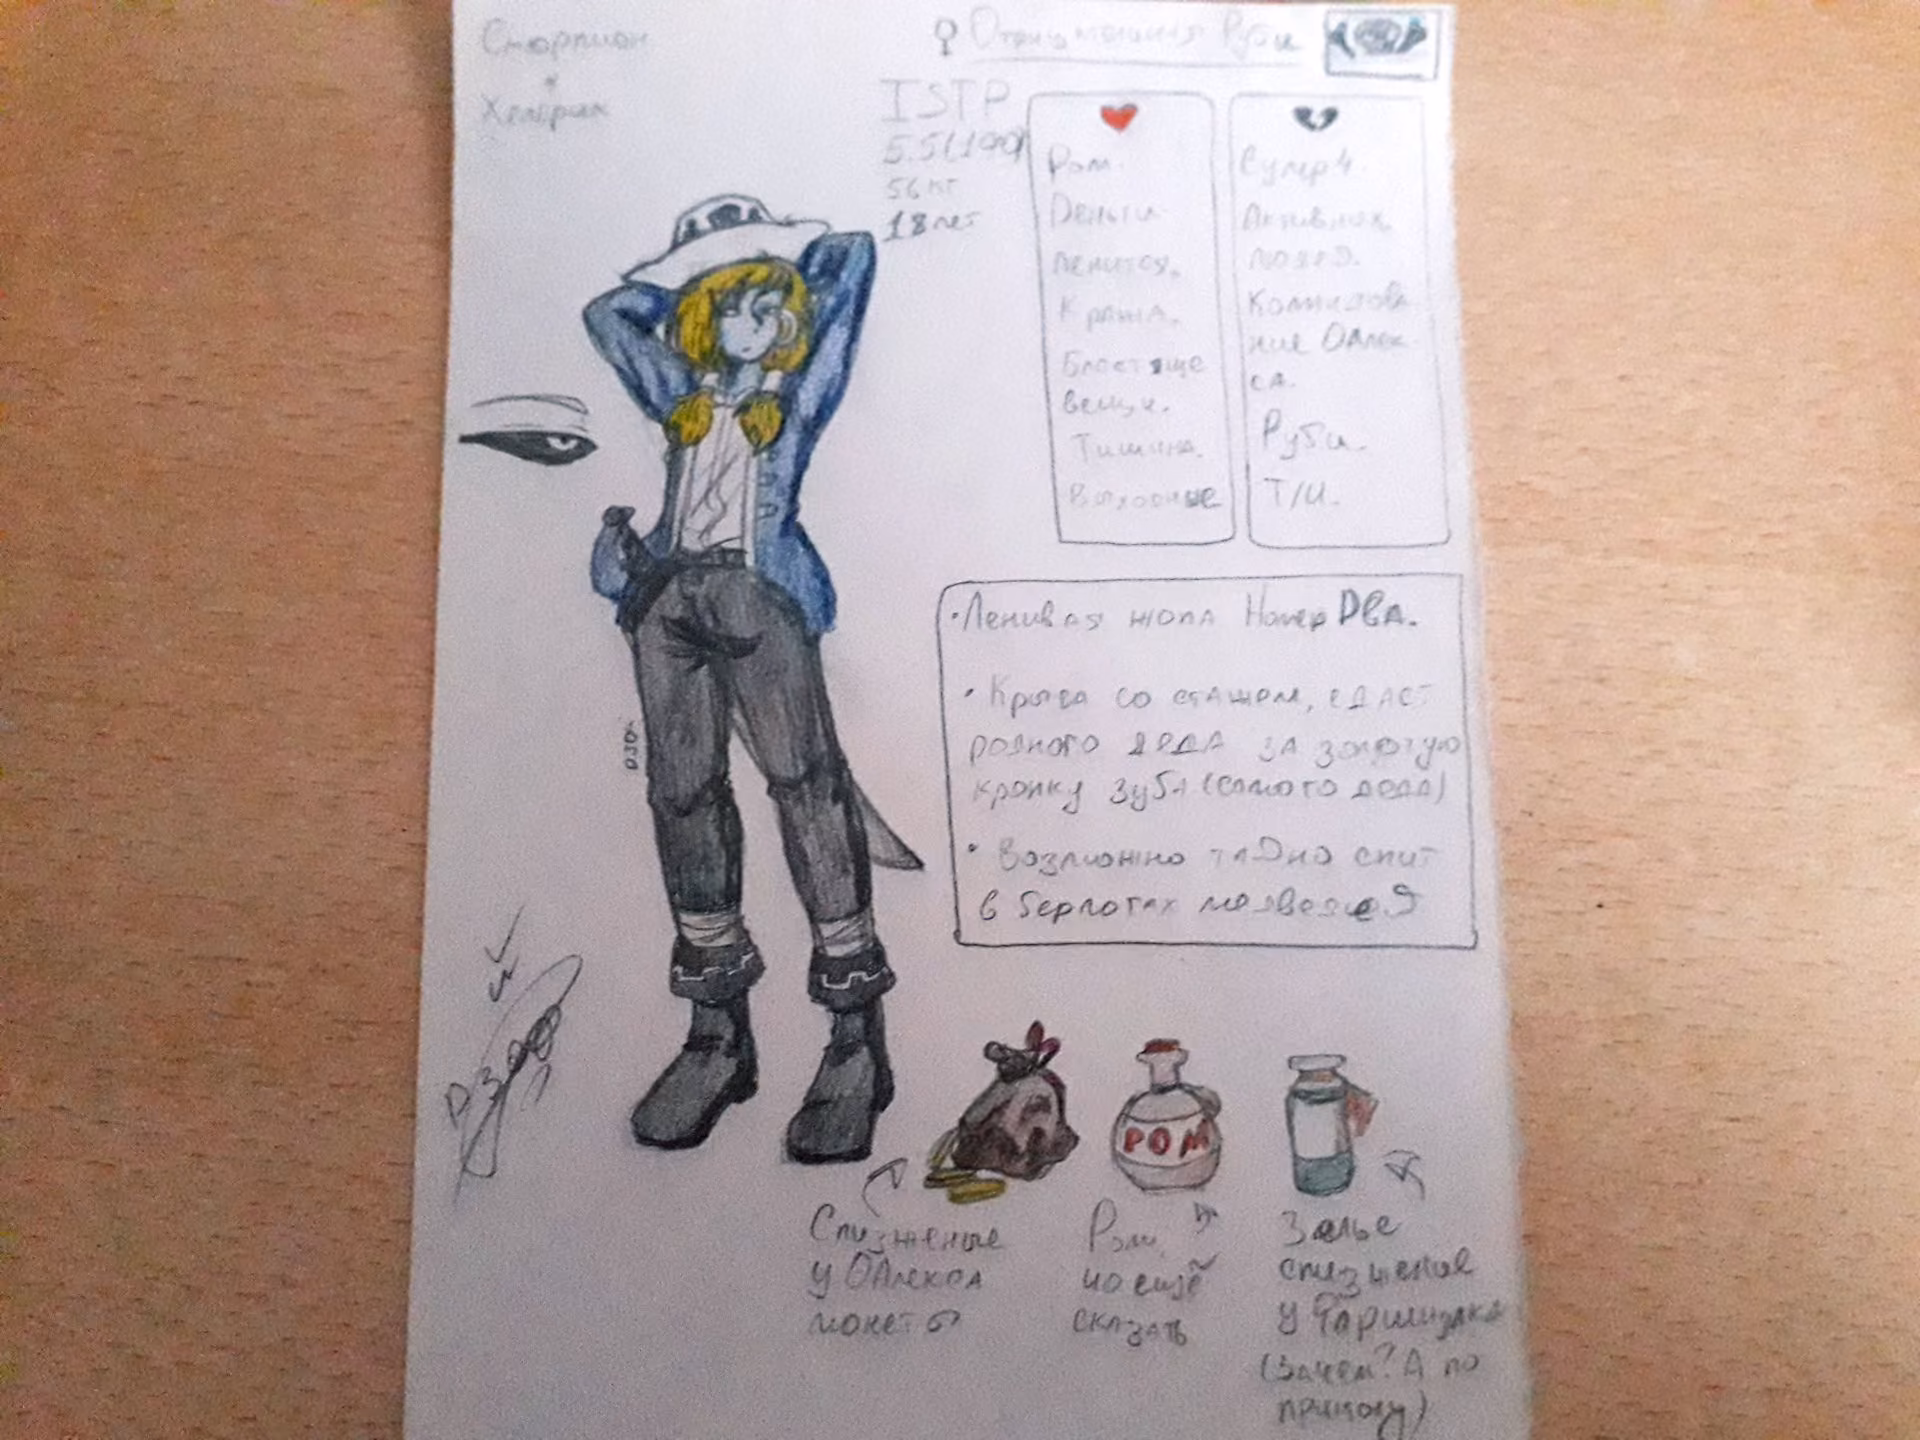 Скорпион
Холерик
♀ Отрицманиия Руби
ISTP
56 кг
18 лет
Ром.
Деньги
ленится.
Кража.
Блестяще
вещи.
Тишина.
Выходные
Супер 4.
Активных
людей.
Коммандова
ние ОАлек
са.
Руби.
Т/И.
• Ленивая жопа Номер Два.
• Крыса со стажем, сдаст
родного деда за золотую
кронку зуба (самого деда)
• Возможно тайно спит
в берлогах медведей
ДЗОЙ
РОМ
Спизженые
у ОАлекса
монеты
Ром,
чо ещё
сказать
Зелье
спизженое
у Фармизака
(Зачем? А по
приколу)